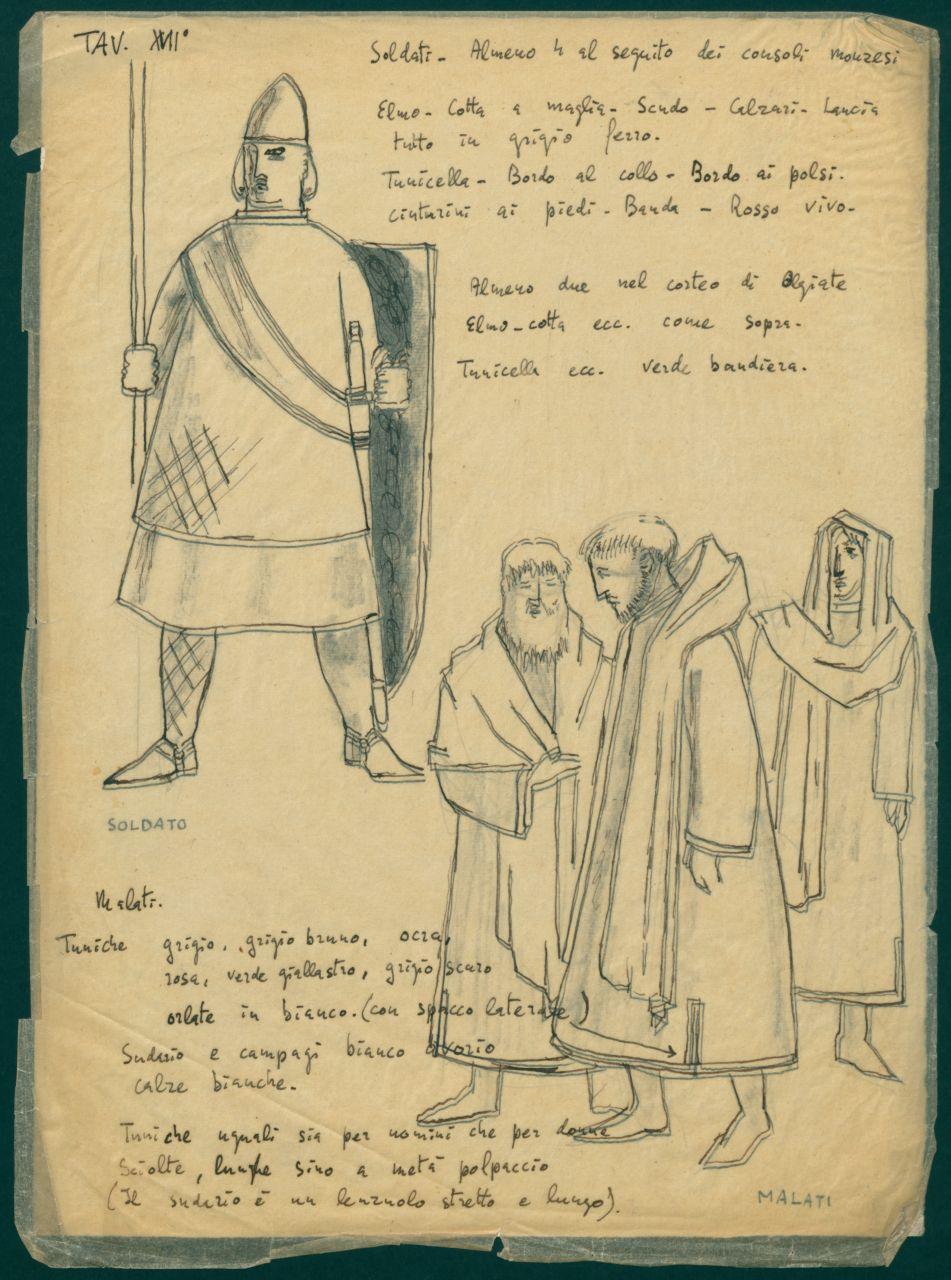 TAV. XVII°
Soldati - Almeno 4 al seguito dei consoli monzesi
Elmo - Cotta a maglia - Scudo - Calzari - Lancia
tutto in grigio ferro.
Tunicella - Bordo al collo - Bordo ai polsi.
cinturini ai piedi - Banda - Rosso vivo -
Almeno due nel corteo di Olgiate
Elmo - cotta ecc. come sopra.
Tunicella ecc. verde bandiera.
SOLDATO
Malati.
Tuniche grigio, grigio bruno, ocra,
rosa, verde giallastro, grigio scuro
orlate in bianco. (con spacco laterale)
Sudario e campagi bianco avorio
calze bianche.
Tuniche uguali sia per uomini che per donne
Sciolte, lunghe sino a metà polpaccio
(Il sudario è un lenzuolo stretto e lungo).
MALATI